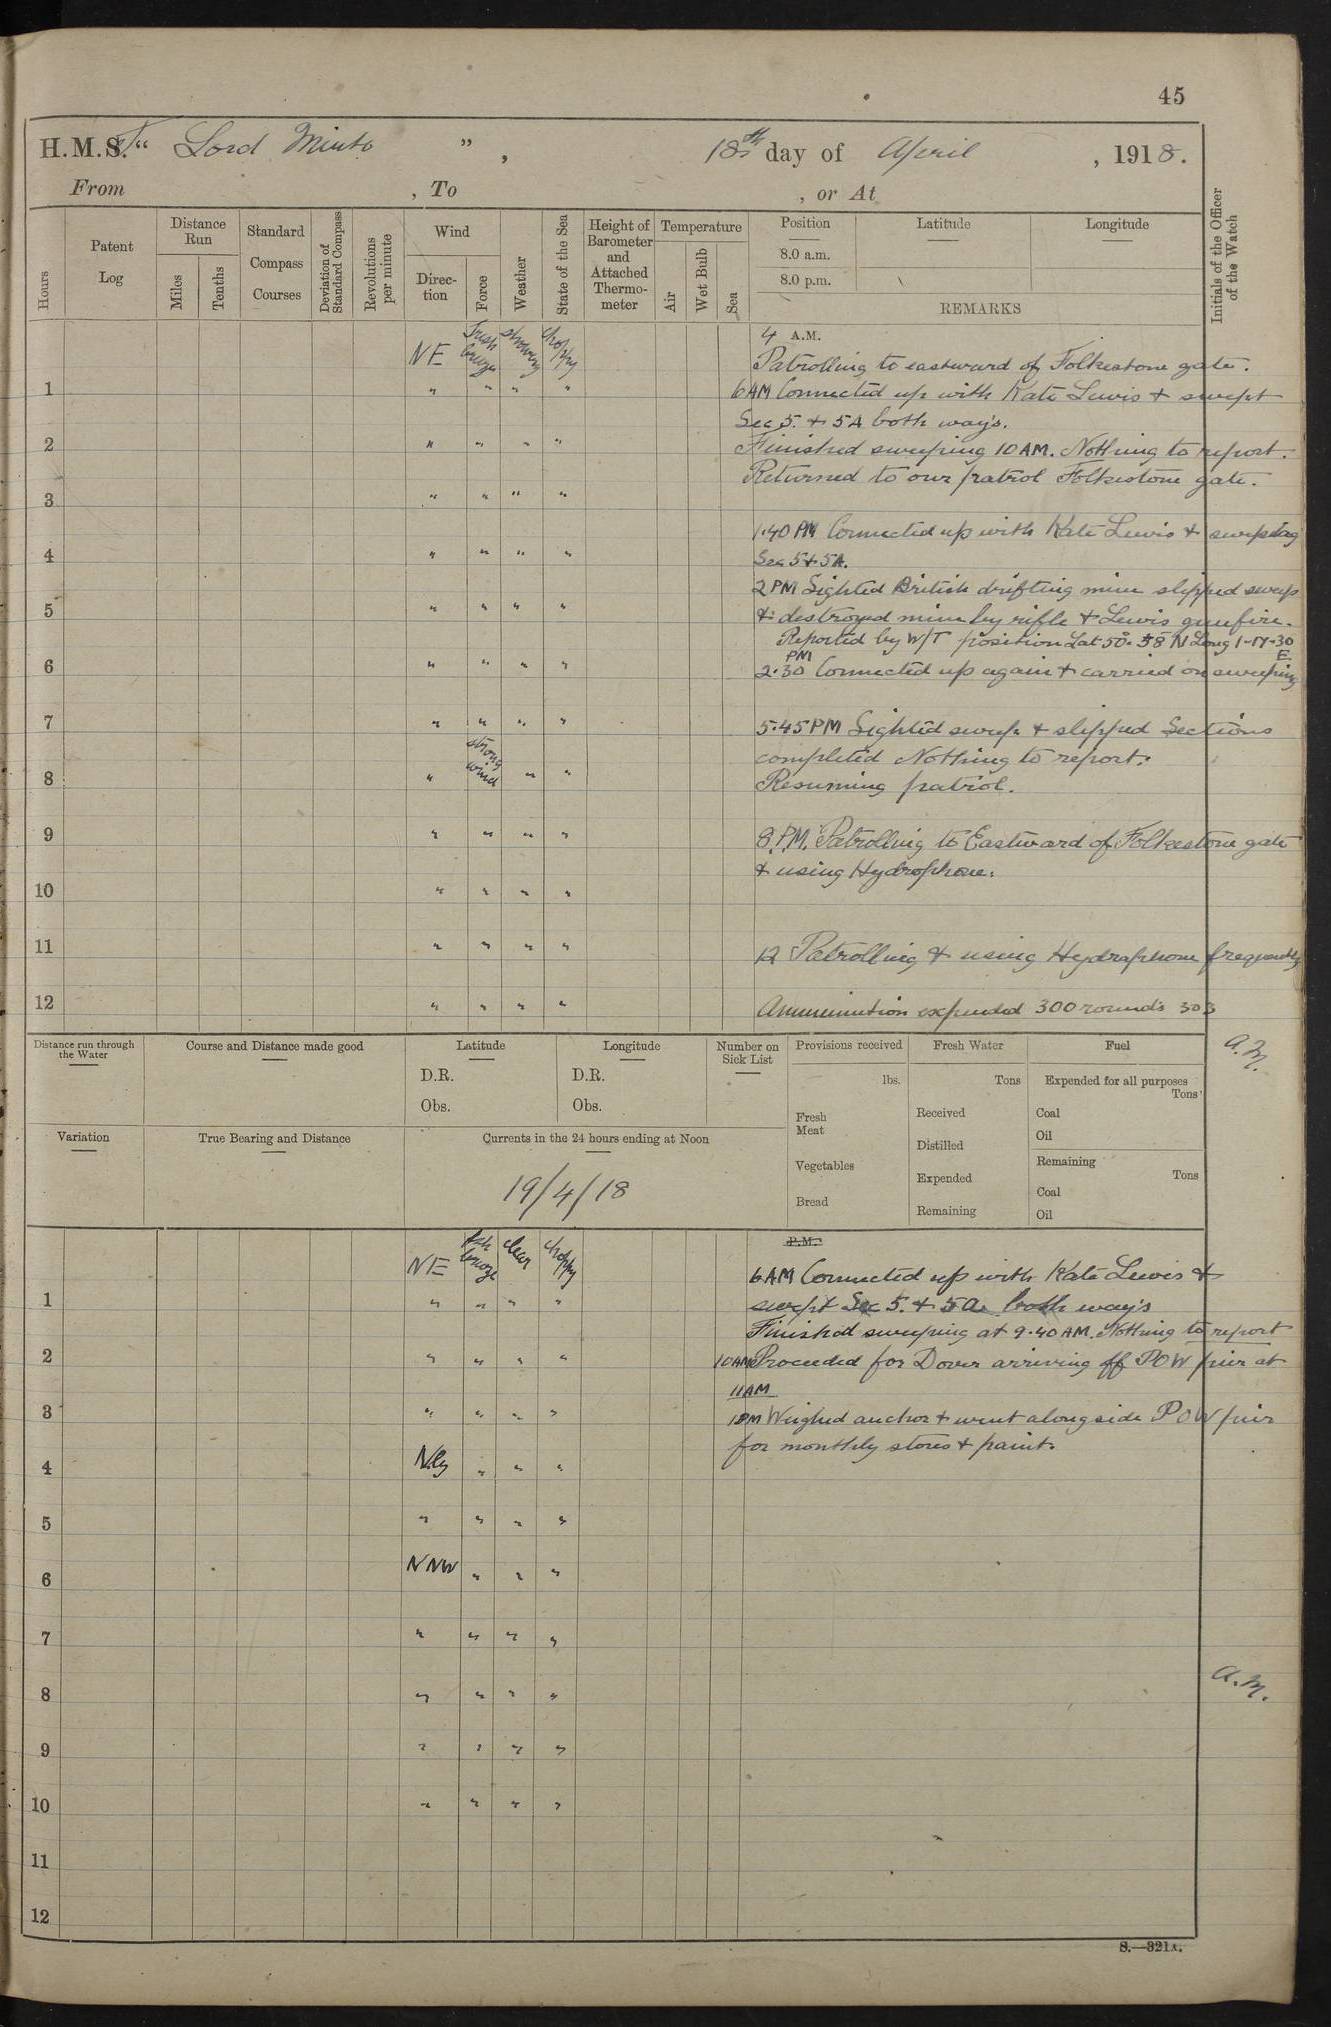 45
H.M.S.T. “ Lord Minto ” , 18th day of April , 1918.
From , To , or At
Hours
Patent Log
Distance Run
Miles
Tenths
Standard Compass Courses
Deviation of Standard Compass
Revolutions per minute
Wind
Direction
Force
Weather
State of the Sea
Height of Barometer and Attached Thermometer
Temperature
Air
Wet Bulb
Sea
Position
8.0 a.m.
8.0 p.m.
Latitude
Longitude
REMARKS
Initials of the Officer of the Watch
NE Fresh breeze showery choppy
4 A.M.
Patrolling to eastward of Folkestone gate.
1 " " " "
6AM Connected up with Kate Lewis & swept
Sec 5. & 5A both way's.
2 " " " "
Finished sweeping 10AM. Nothing to report.
Returned to our patrol Folkestone gate.
3 " " " "
1.40 PM Connected up with Kate Lewis &
4 " " " "
Sec 5 & 5A.
2PM Sighted British drifting mine slipped sweep
5 " " " "
& destroyed mine by rifle & Lewis gunfire.
Reported by W/T position Lat 50.58 N Long 1-17-30 E.
6 " " " "
2.30 PM Connected up again & carried on sweeping
7 " " " "
5.45PM Sighted sweep & slipped Sections
strong wind
completed Nothing to report.
8 " " "
Resuming patrol.
9 " " " "
8.PM. Patrolling to Eastward of Folkestone gate
& using Hydrophone.
10 " " " "
11 " " " "
12 Patrolling & using Hydrophone frequently
12 " " " "
Ammunition expended 300 rounds 303
A.M.
Distance run through the Water
Course and Distance made good
Latitude
D.R.
Obs.
Longitude
D.R.
Obs.
Number on Sick List
Provisions received
lbs.
Fresh Meat
Vegetables
Bread
Fresh Water
Tons
Received
Distilled
Expended
Remaining
Fuel
Expended for all purposes
Tons
Coal
Oil
Remaining
Tons
Coal
Oil
Variation
True Bearing and Distance
Currents in the 24 hours ending at Noon
19/4/18
P.M.
NE fsh breeze clear choppy
6AM Connected up with Kate Lewis &
1 " " " "
swept Sec 5. & 5A. both way's
Finished sweeping at 9.40AM. Nothing to report
2 " " " "
10AM Proceeded for Dover arriving off POW pier at
11AM
3 " " " "
Weighed anchor & went alongside POW pier
for monthly stores & paint.
4 N'ly " " "
5 " " " "
6 NNW " " "
7 " " " "
8 " " " "
A.M.
9 " " " "
10 " " " "
11
12
S.—321A.